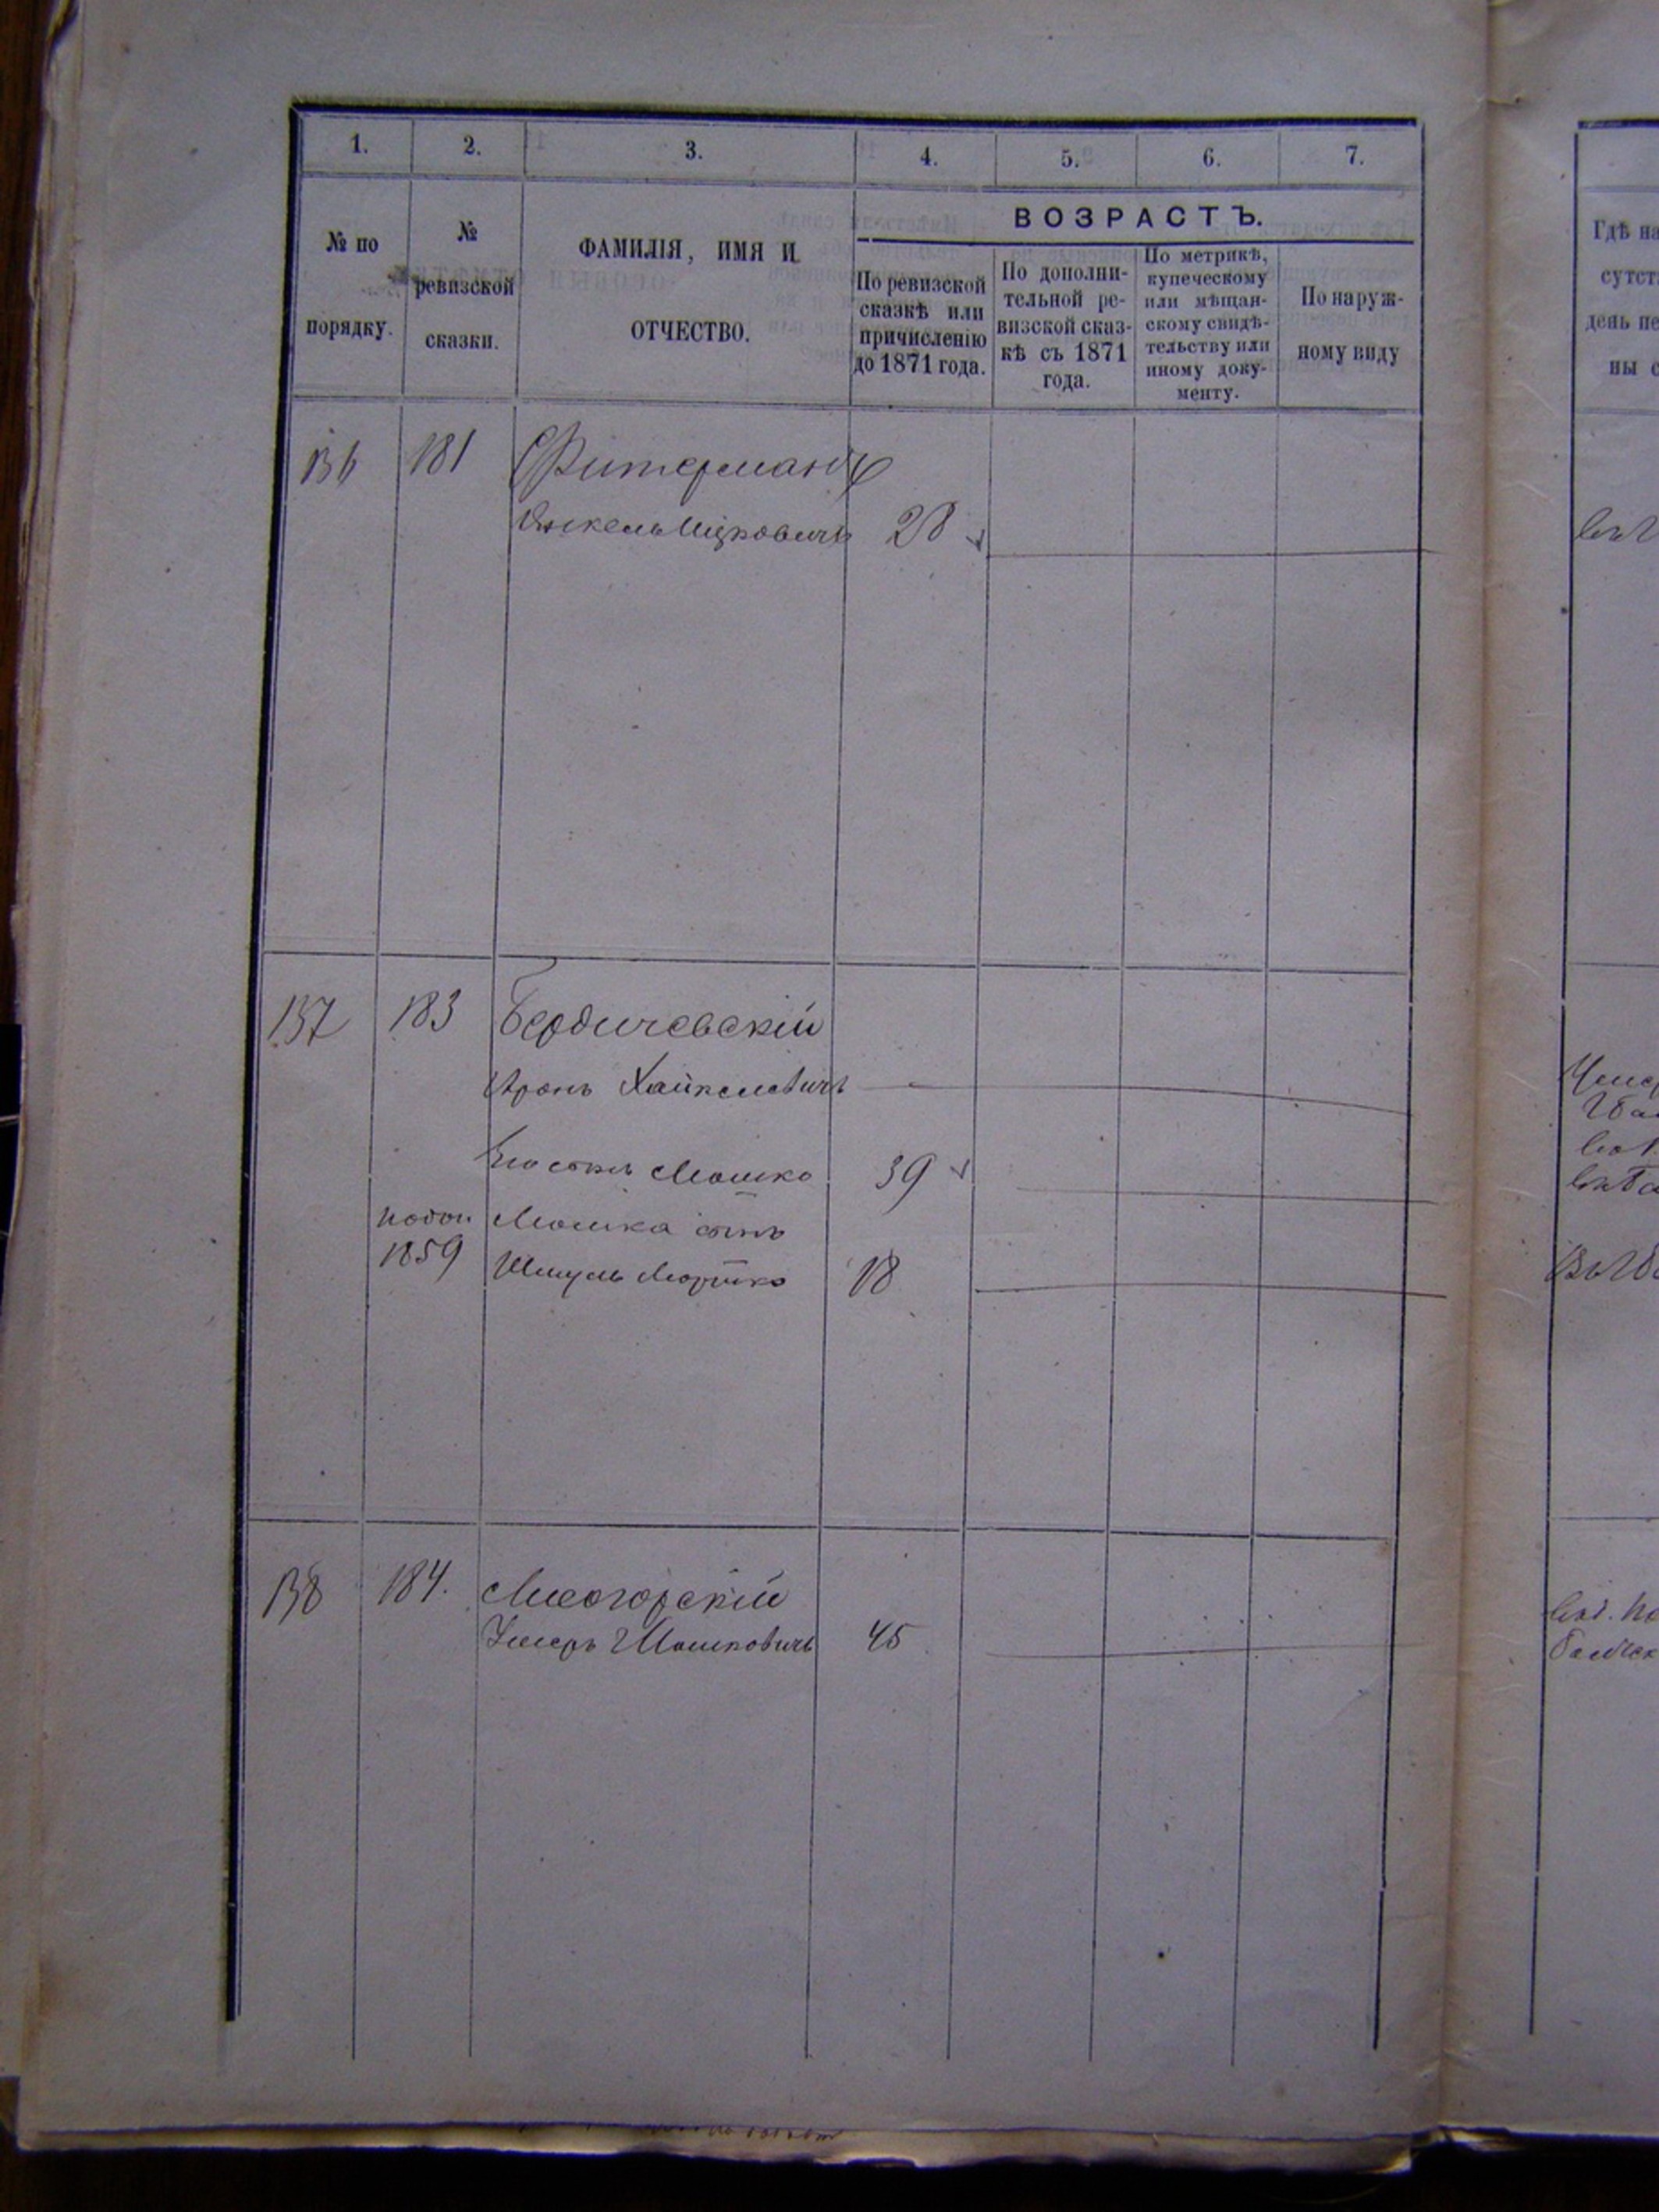 1. 2. 3. 4. 5. 6. 7.
№ по порядку.
№ ревизской сказки.
ФАМИЛІЯ, ИМЯ И ОТЧЕСТВО.
ВОЗРАСТЪ.
По ревизской
сказкѣ или
причисленію
до 1871 года.
По дополни-
тельной ре-
визской сказ-
кѣ съ 1871
года.
По метрикѣ,
купеческому
или мѣщан-
скому свидѣ-
тельству или
иному доку-
менту.
По наруж-
ному виду
136 181 Фитерманъ
Янкель Ицковичъ 28
137 183 Бердичевскій
Аронъ Хайкелевичъ
Мошко 39
1859 Мошка сынъ
Шмуль 18
138 184.
Умеръ Мошковичъ 45
Гдѣ на
сутст
день пе
ны с